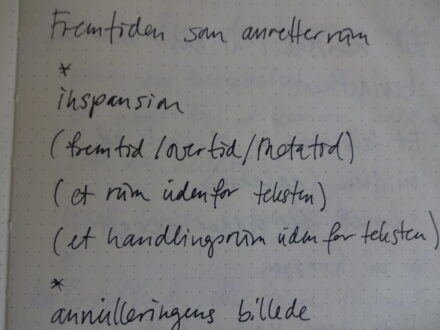 Fremtiden som anretterrum
*
ekspansion
(fremtid/overtid/metatid)
(et rum udenfor teksten)
(et handlingsrum udenfor teksten)
*
annulleringens billede